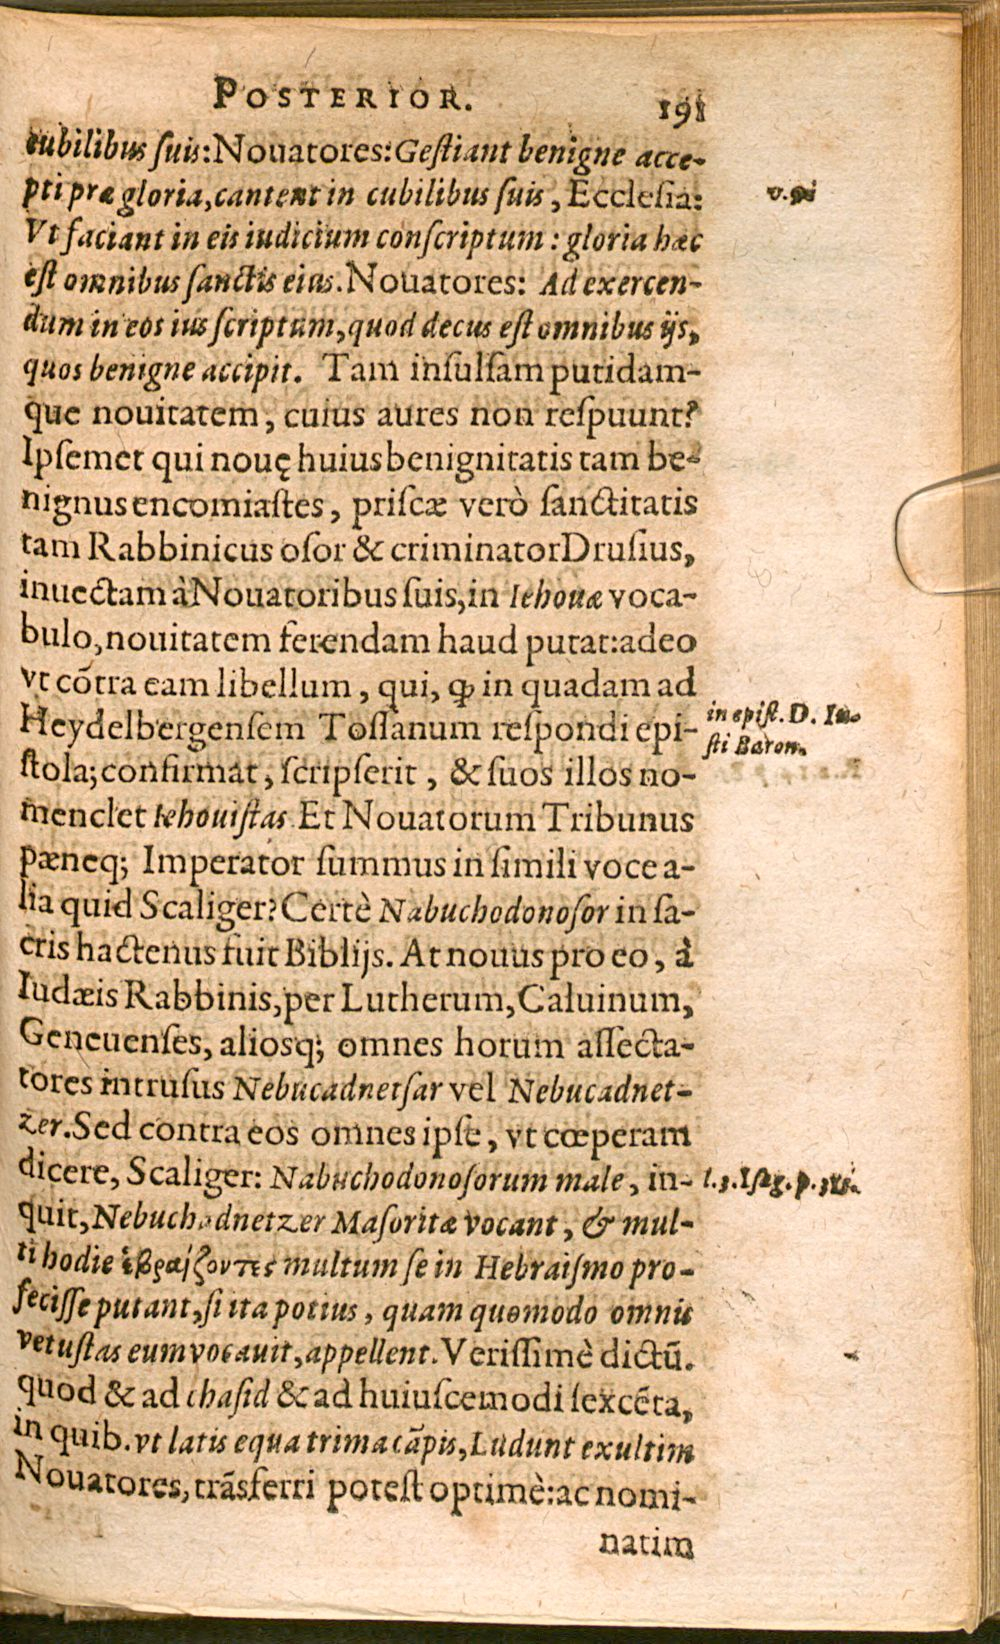 POSTERIOR. 191
cubilibus ſuis: Nouatores: Geſtiant benigne acce-
pti præ gloria, cantent in cubilibus ſuis, Eccleſia:
v. 9.
Vt faciant in eis iudicium conſcriptum: gloria hæc
eſt omnibus ſanctis eius. Nouatores: Ad exercen-
dum in eos ius ſcriptum, quod decus eſt omnibus ijs,
quos benigne accipit. Tam inſulſam putidam-
que nouitatem, cuius aures non reſpuunt?
Ipſemet qui nouę huius benignitatis tam be-
nignus encomiaſtes, priſcæ verò ſanctitatis
tam Rabbinicus oſor & criminator Druſius,
inuectam à Nouatoribus ſuis, in Iehouæ voca-
bulo, nouitatem ferendam haud putat: adeo
vt cõtra eam libellum, qui, ꝙ in quadam ad
Heydelbergenſem Toſſanum reſpondi epi-
in epiſt. D. Iu-
ſti Baron.
ſtola; confirmat, ſcripſerit, & ſuos illos no-
menclet Iehouiſtas Et Nouatorum Tribunus
pæneq; Imperator ſummus in ſimili voce a-
lia quid Scaliger? Certè Nabuchodonoſor in ſa-
cris hactenus fuit Biblijs. At nouus pro eo, à
Iudæis Rabbinis, per Lutherum, Caluinum,
Geneuenſes, aliosq; omnes horum aſſecta-
tores intruſus Nebucadnetſar vel Nebucadnet-
zer. Sed contra eos omnes ipſe, vt cœperam
dicere, Scaliger: Nabuchodonoſorum male, in-
l. 3. Iſag. p.
quit, Nebuchadnetzer Maſoritæ vocant, & mul-
ti hodie ἑβραΐζοντες multum ſe in Hebraiſmo pro-
feciſſe putant, ſi ita potius, quam quomodo omnis
vetuſtas eum vocauit, appellent. Veriſſimè dictũ.
quod & ad chaſid & ad huiuſcemodi ſexcẽta,
in quib. vt latis equa trima cãpis, Ludunt exultim
Nouatores, trãsferri poteſt optimè: ac nomi-
natim